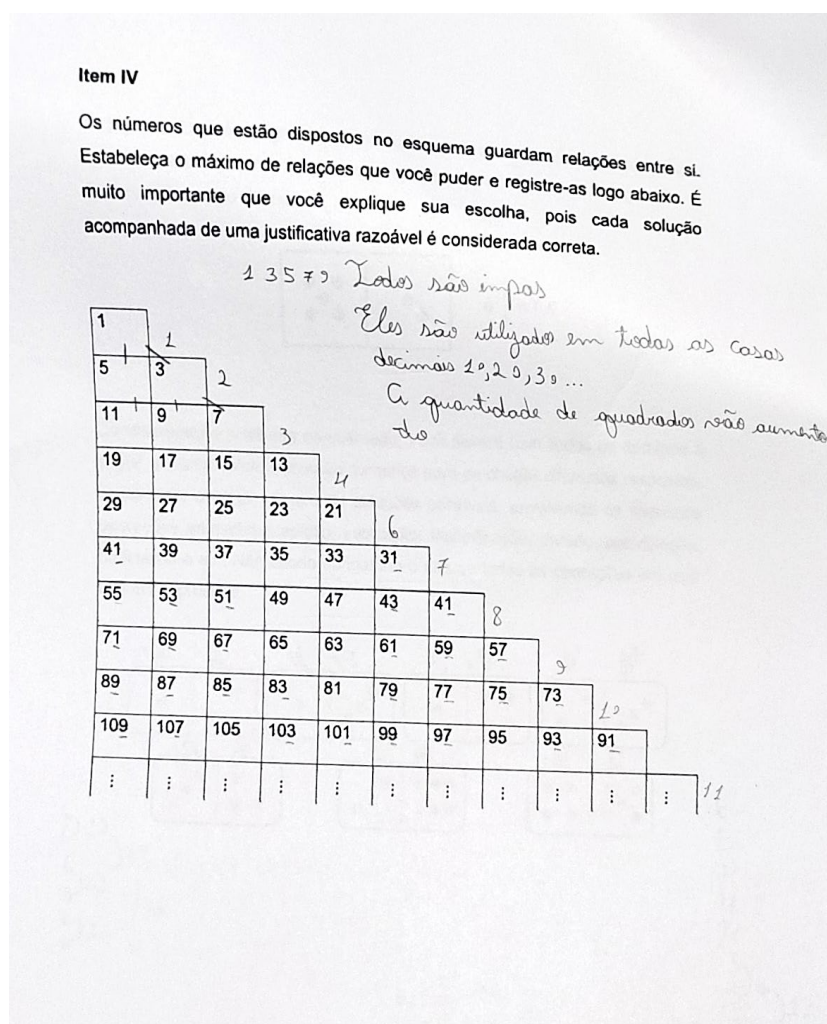 Item IV
Os números que estão dispostos no esquema guardam relações entre si.
Estabeleça o máximo de relações que você puder e registre-as logo abaixo. É
muito importante que você explique sua escolha, pois cada solução
acompanhada de uma justificativa razoável é considerada correta.
1 3 5 7 9 Todos são impas
Eles são utilizados em todas as casas
decimais 10, 20, 30 ...
A quantidade de quadrados vão aumenta
do
1 1
5 3 2
11 9 7 3
19 17 15 13 4
29 27 25 23 21 6
41 39 37 35 33 31 7
55 53 51 49 47 43 41 8
71 69 67 65 63 61 59 57 9
89 87 85 83 81 79 77 75 73 10
109 107 105 103 101 99 97 95 93 91
⋮ ⋮ ⋮ ⋮ ⋮ ⋮ ⋮ ⋮ ⋮ ⋮ ⋮ 11